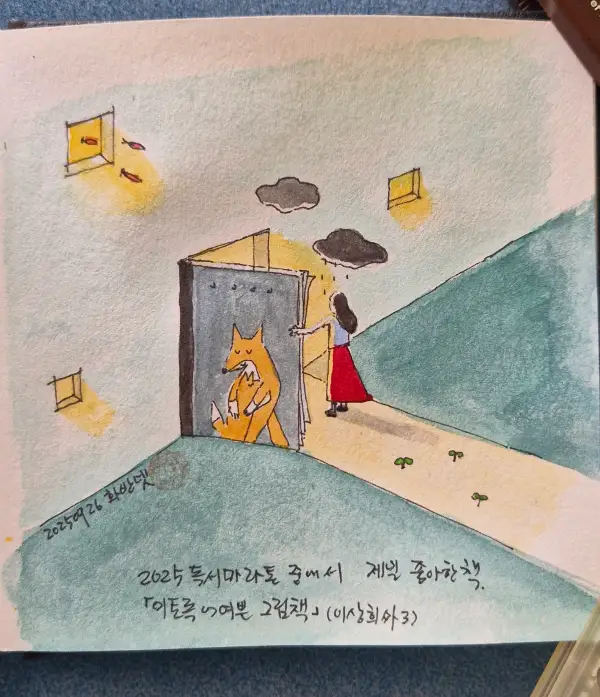 20250926
2025 독서마라톤 중에서 제일 좋아한책.
「이토록 어여쁜 그림책」 (이상희 외 3)